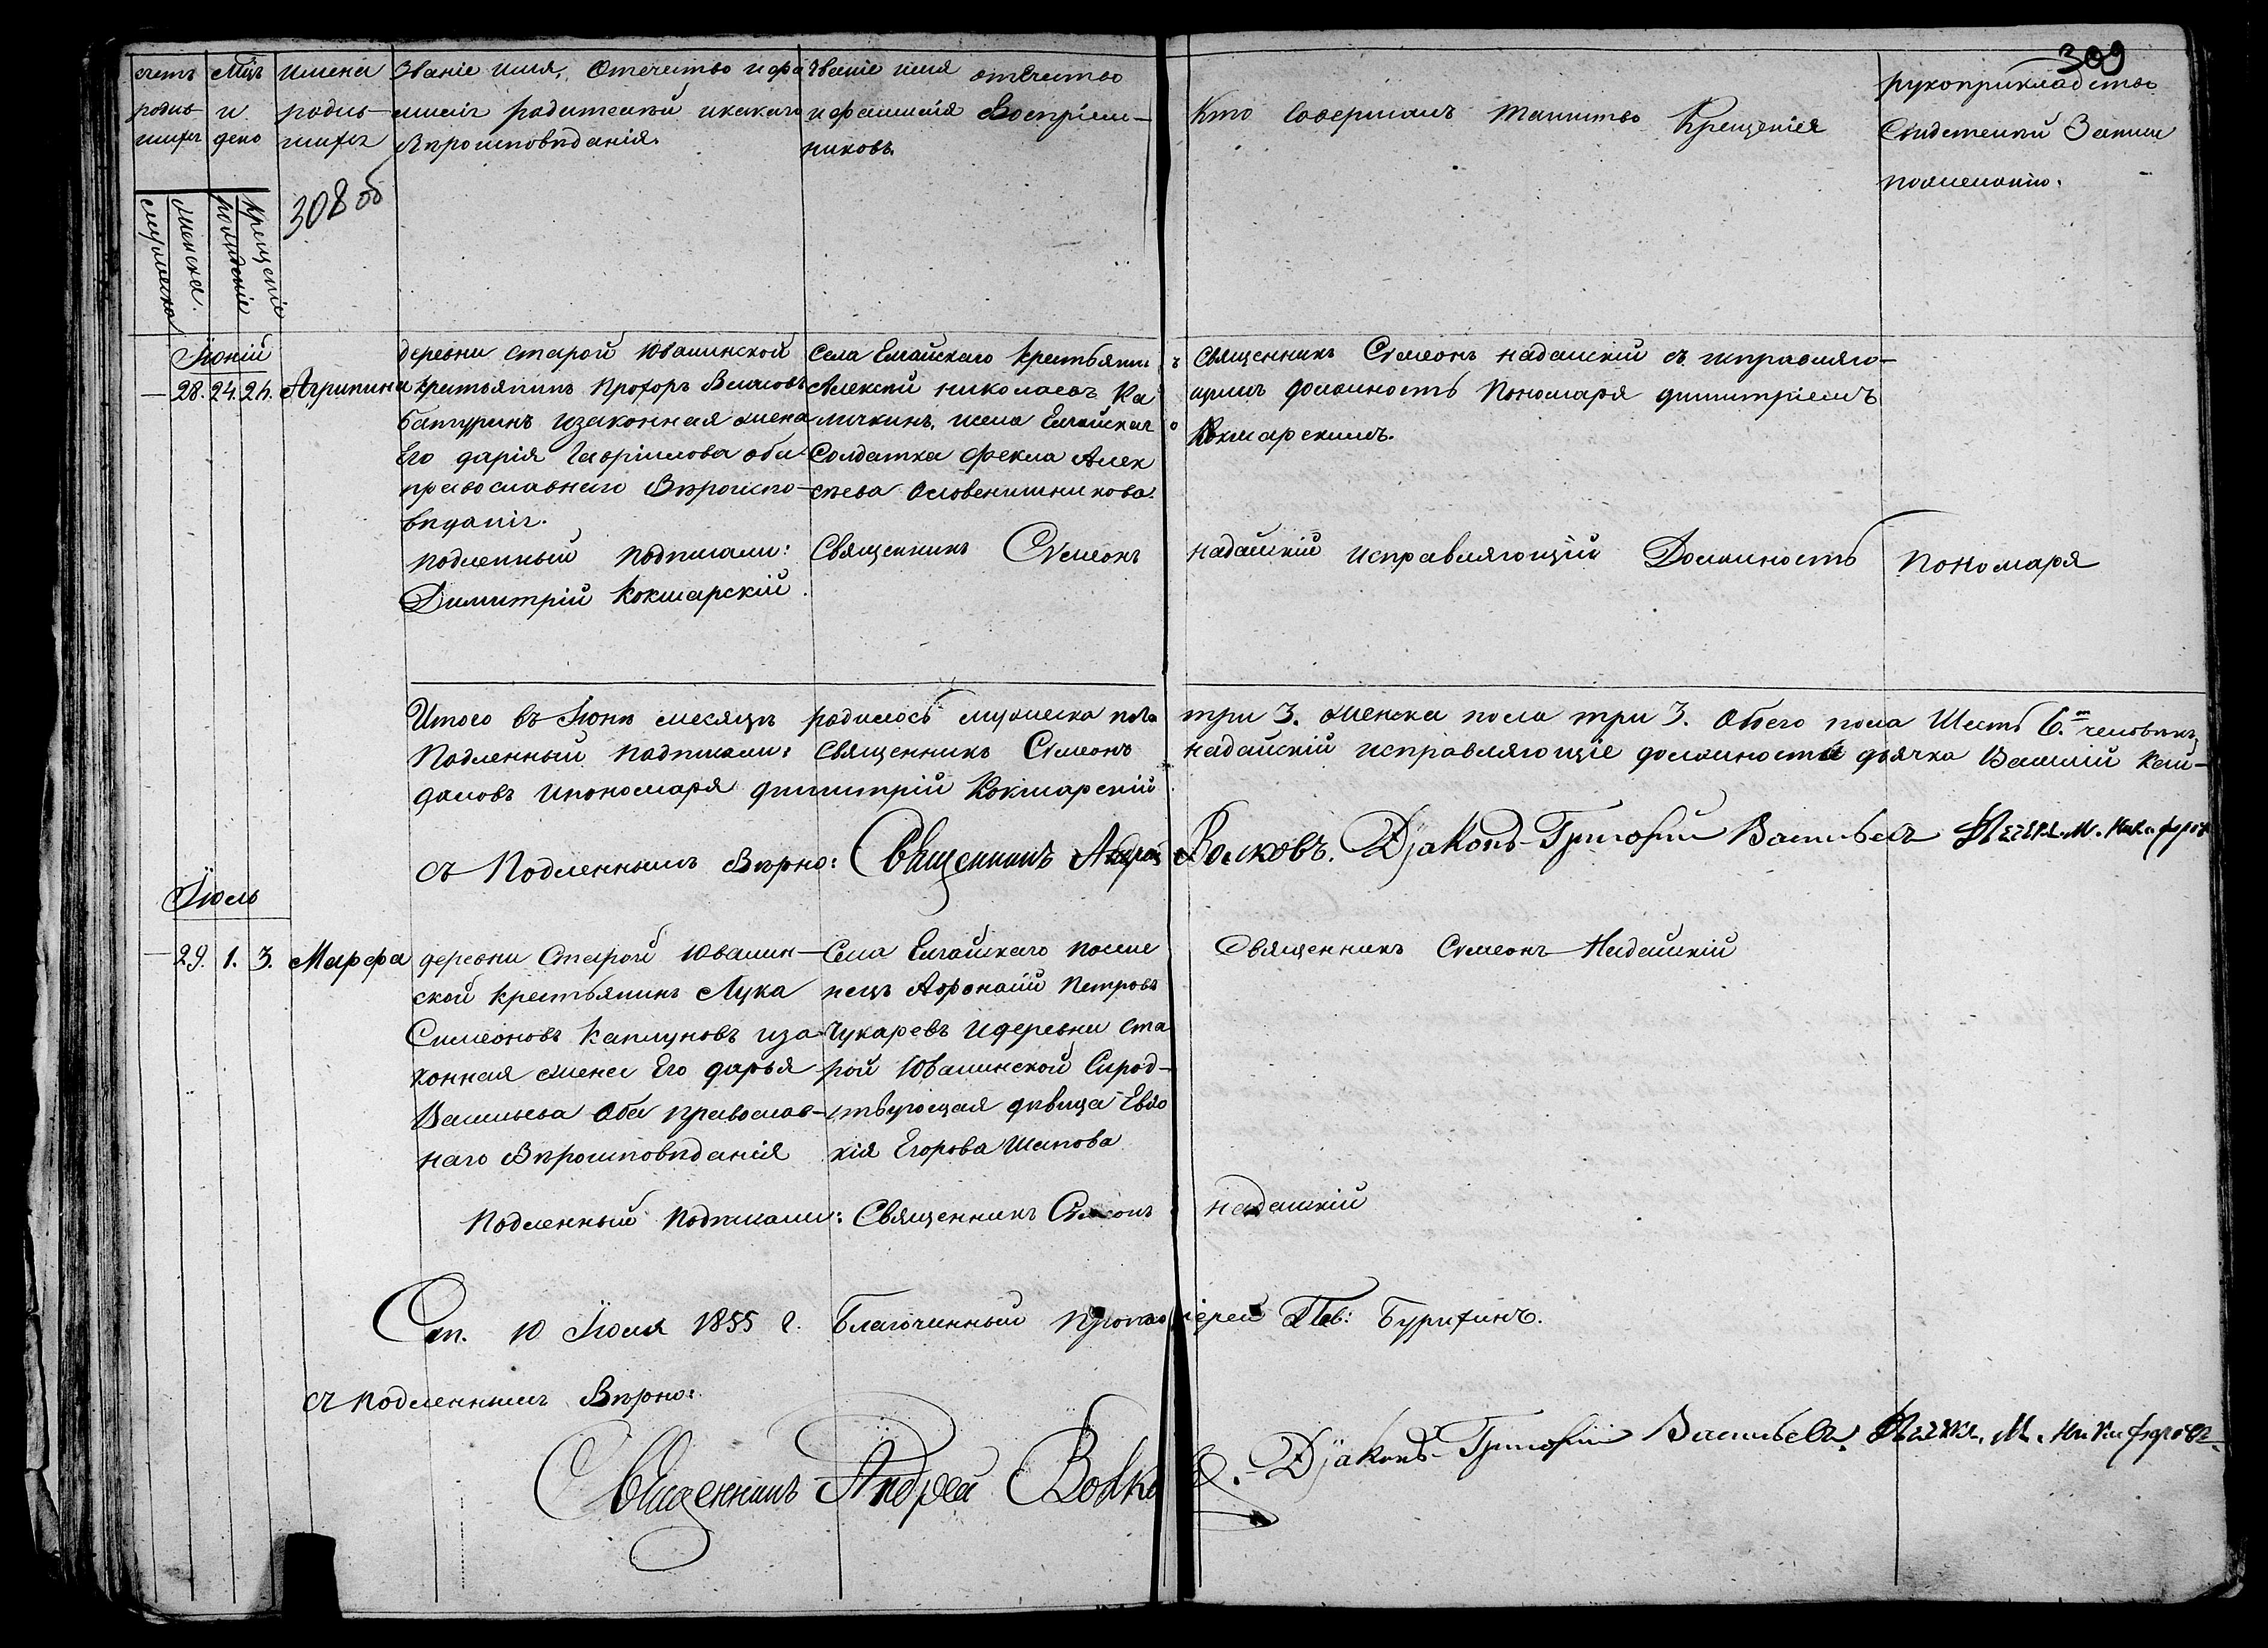 309
счетъ родив-шихся
мѣц и день
имена родив-шихся
Званіе имя, Отчество и фа-миліе родителей и какаго Вѣроисповѣданія.
Званіе имя отечество и фамилія Воспріем-никовъ
Кто Совершалъ таинство Крещенія
рукоприкладство Свидетелей Записи по желанію.
308 об
мужеска
женска.
рожденіе
крещеніе
Іюній
28. 24. 25. Агрипина
деревни старой Ювалинской
крестьянинъ Прохоръ Власовъ
Батуринъ и законная жена
Его дарія Гавріилова оба
православнаго Вѣроиспо-
вѣданія.
Села Елгайскаго крестьянин
Алексѣй николаевъ Ка
личкинъ, и села Елгайскаг
Солдатка Фекла Алек
сѣева Словенишникова.
ъ Священникъ Сѵмеонъ надашкій съ исправляю-
щимъ должность Пономаря димитріемъ
о Кокшарскимъ.
подленный подписали: Священникъ Сѵмеонъ надашкій исправляющій Должность Пономаря
Димитрій Кокшарскій.
Итого въ Іюнѣ месяцѣ родилось мужеска пола три 3. женска пола три 3. Обего пола Шесть 6. человѣкъ,
Подленный подписали: Священникъ Сѵмеонъ надашкій исправляющіе должности дьячка Василій Кай-
даловъ и пономаря димитрій Кокшарскій.
Съ Подленнымъ Вѣрно: Священникъ Андрей Волковъ. Дїаконъ Григорій Васильевъ М. Никифоровъ
Іюль
29. 1. 3. Марфа
деревни Старой Ювалин-
ской крестьянинъ Лука
Симеоновъ Каплуновъ и за-
конная жена Его дарья
Васильева Оба православ-
наго Вѣроисповѣданія
Села Елгайскаго поселе
нецъ Афонасій Петровъ
Чукаревъ и деревни ста
рой Ювалинской Сирод-
ствующая дѣвица Евдо
кія Егорова Шапова
Священникъ Сѵмеонъ Надашкій
Подленный Подписали: Священникъ Сѵмеонъ надашкій
10 Іюля 1855 г. Благочинный Протоіерей
Съ подленнымъ Вѣрно:
Священникъ Андрей Волковъ. Дїаконъ Григорій Васильевъ. М. Никифоровъ.